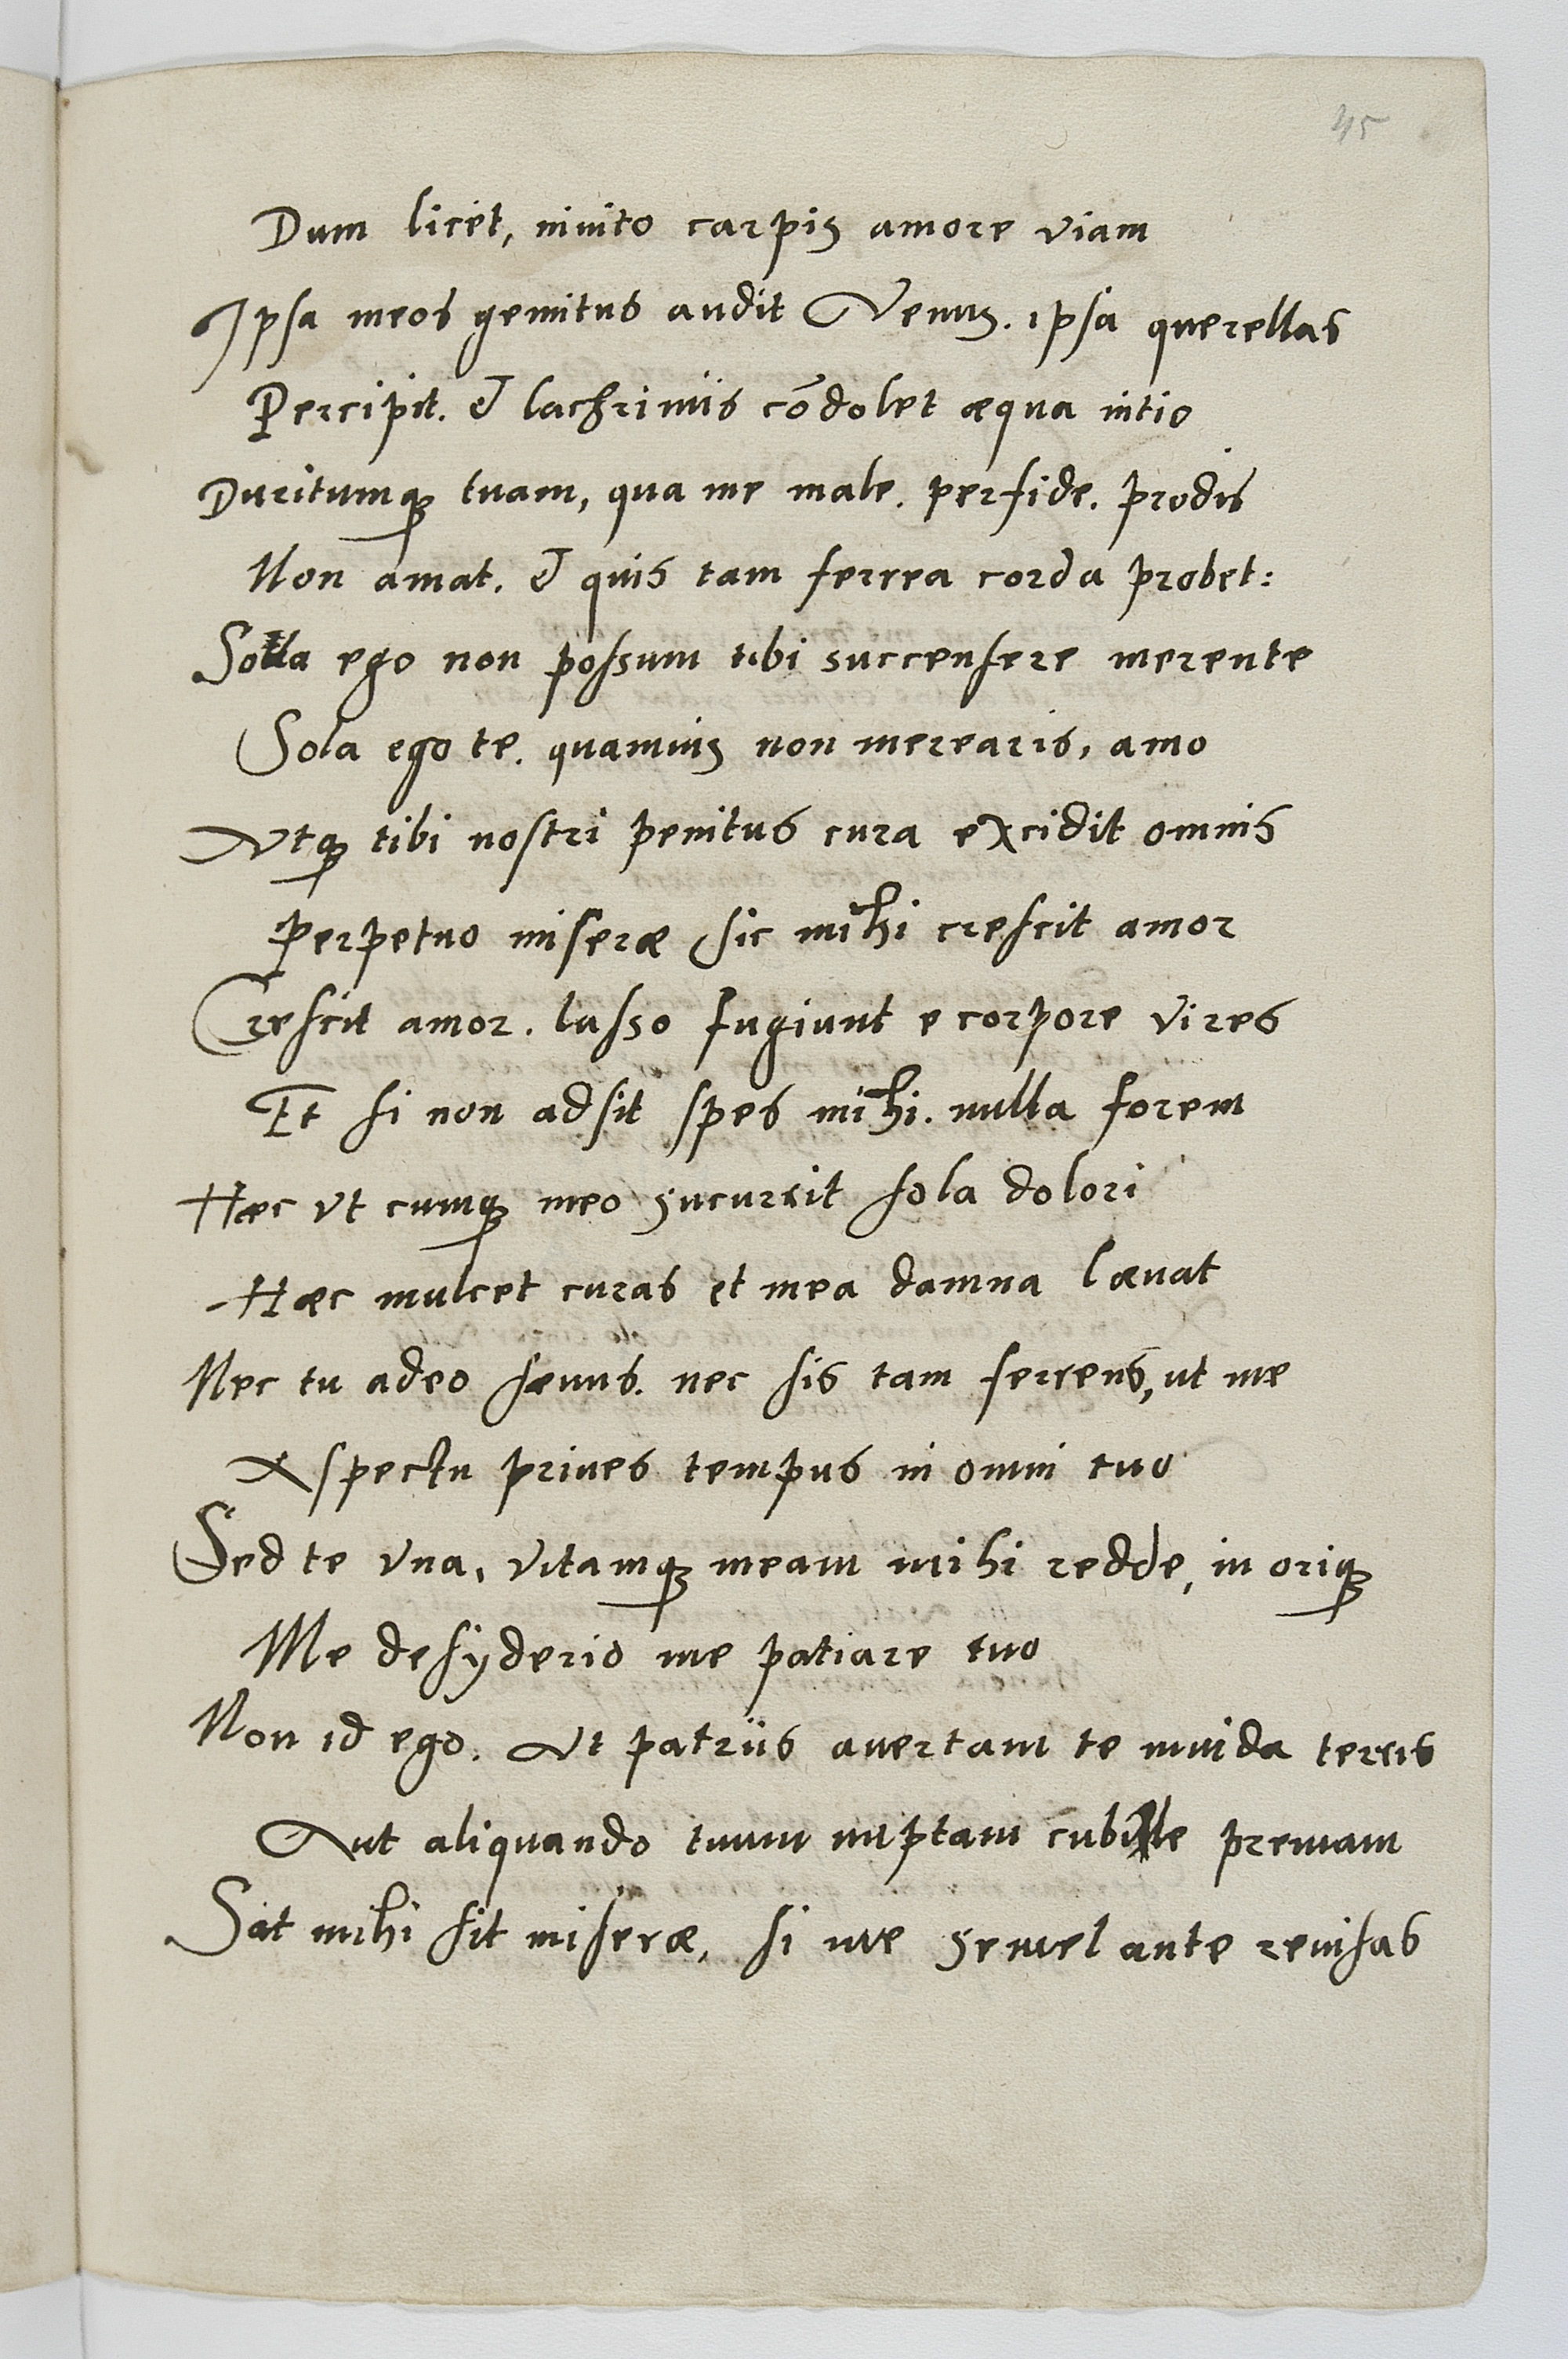 45
Dum licet, inuito carpis amore viam
Ipsa meos gemitus audit Venus. ipsa querellas
Percipit. & lachrimis cōdolet æqua intio
Duritumqꝫ tuam, qua me male. perfide. prodis
Non amat. & quis tam ferrea corda probet:
Solla ego non possum tibi succensere merente
Sola ego te. quamuis non merearis, amo
Vtqꝫ tibi nostri penitus cura excidit omnis
Perpetuo miseræ sic mihi crescit amor
Crescit amor. lasso fugiunt e corpore vires
Et si non adsit spes mihi. nulla forem
Hæc vt cumqꝫ meo sucurrit sola dolori
Hæc mulcet curas et mea damna læuat
Nec tu adeo sæuus. nec sis tam ferreus, ut me
Aspectu priues tempus in omni tuo
Sed te vna, vitamqꝫ meam mihi redde, in oriqꝫ
Me desyderio me patiare tuo
Non id ego. Vt patriis auertam te inuida terris
Aut aliquando tuum nuptam cubile premam
Sat mihi sit miseræ, si me semel ante reuisas